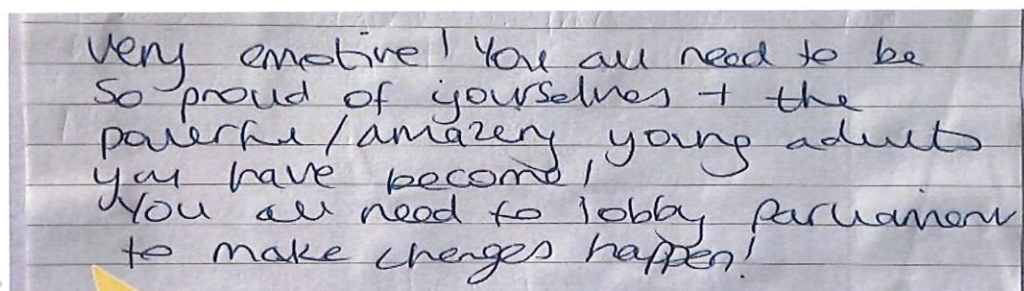 very emotive! You all need to be
so proud of yourselves + the
powerful/amazing young adults
you have become!
You all need to lobby parliament
to make changes happen!